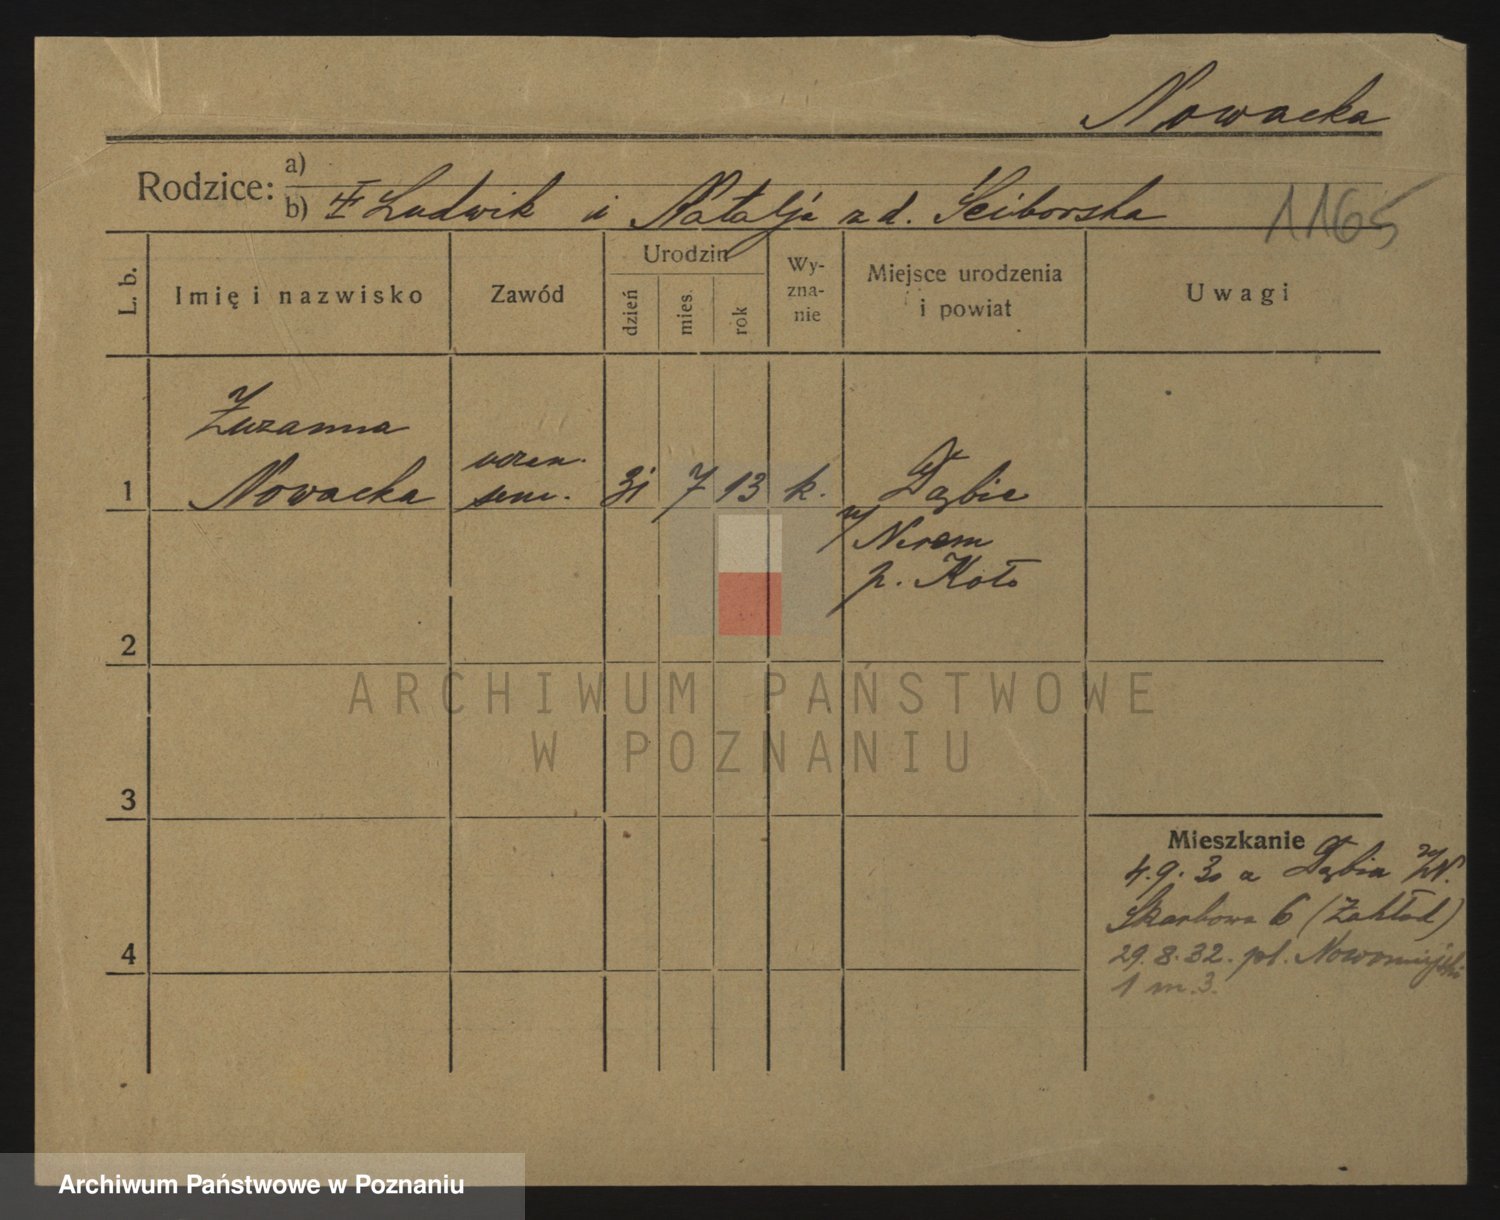 Nowacka
Rodzice: a)
b) Ludwik i Natalja z d. Ściborska
1165
L. b.
Imię i nazwisko
Zawód
Urodzin
dzień
mies.
rok
Wy-
zna-
nie
Miejsce urodzenia
i powiat
Uwagi
Zuzanna
uczen.
1 Nowacka sem. 31 7 13 k. Dąbie
n/Nerem
p. Koło
2
ARCHIWUM PAŃSTWOWE
W POZNANIU
3
Mieszkanie
4.9.30 z Dąbia n/N.
Skarbowa 6 (Zakład)
29.8.32. pl. Nowomiejski
1 m.3.
4
Archiwum Państwowe w Poznaniu